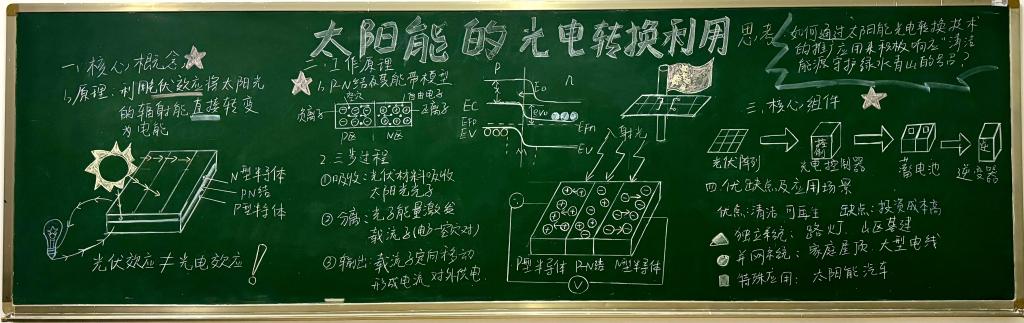 太阳能的光电转换利用
一、核心概念
1、原理：利用光伏效应将太阳光
的辐射能直接转变
为电能
N型半导体
PN结
P型半导体
光伏效应≠光电效应！
二、工作原理
1、P-N结及其能带模型
空穴
自由电子
负离子
正离子
P区
N区
P
n
Eo
EC
EFp
EV
eV₀
EFn
EV
2.三步过程
①吸收：光伏材料吸收
太阳光光子
②分离：光子能量激发
载流子(电子-空穴对)
③输出：载流子定向移动
形成电流 对外供电
入射光
P型半导体 P-N结 N型半导体
V
思考
如何通过太阳能光电转换技术
的推广应用来积极响应"清洁
能源守护绿水青山的号召？
三、核心组件
控制
逆
光伏阵列
光电控制器
蓄电池
逆变器
四、优缺点及应用场景
优点：清洁 可再生 缺点：投资成本高
独立系统：路灯、山区基建
并网系统：家庭屋顶、大型电线
特殊应用：太阳能汽车